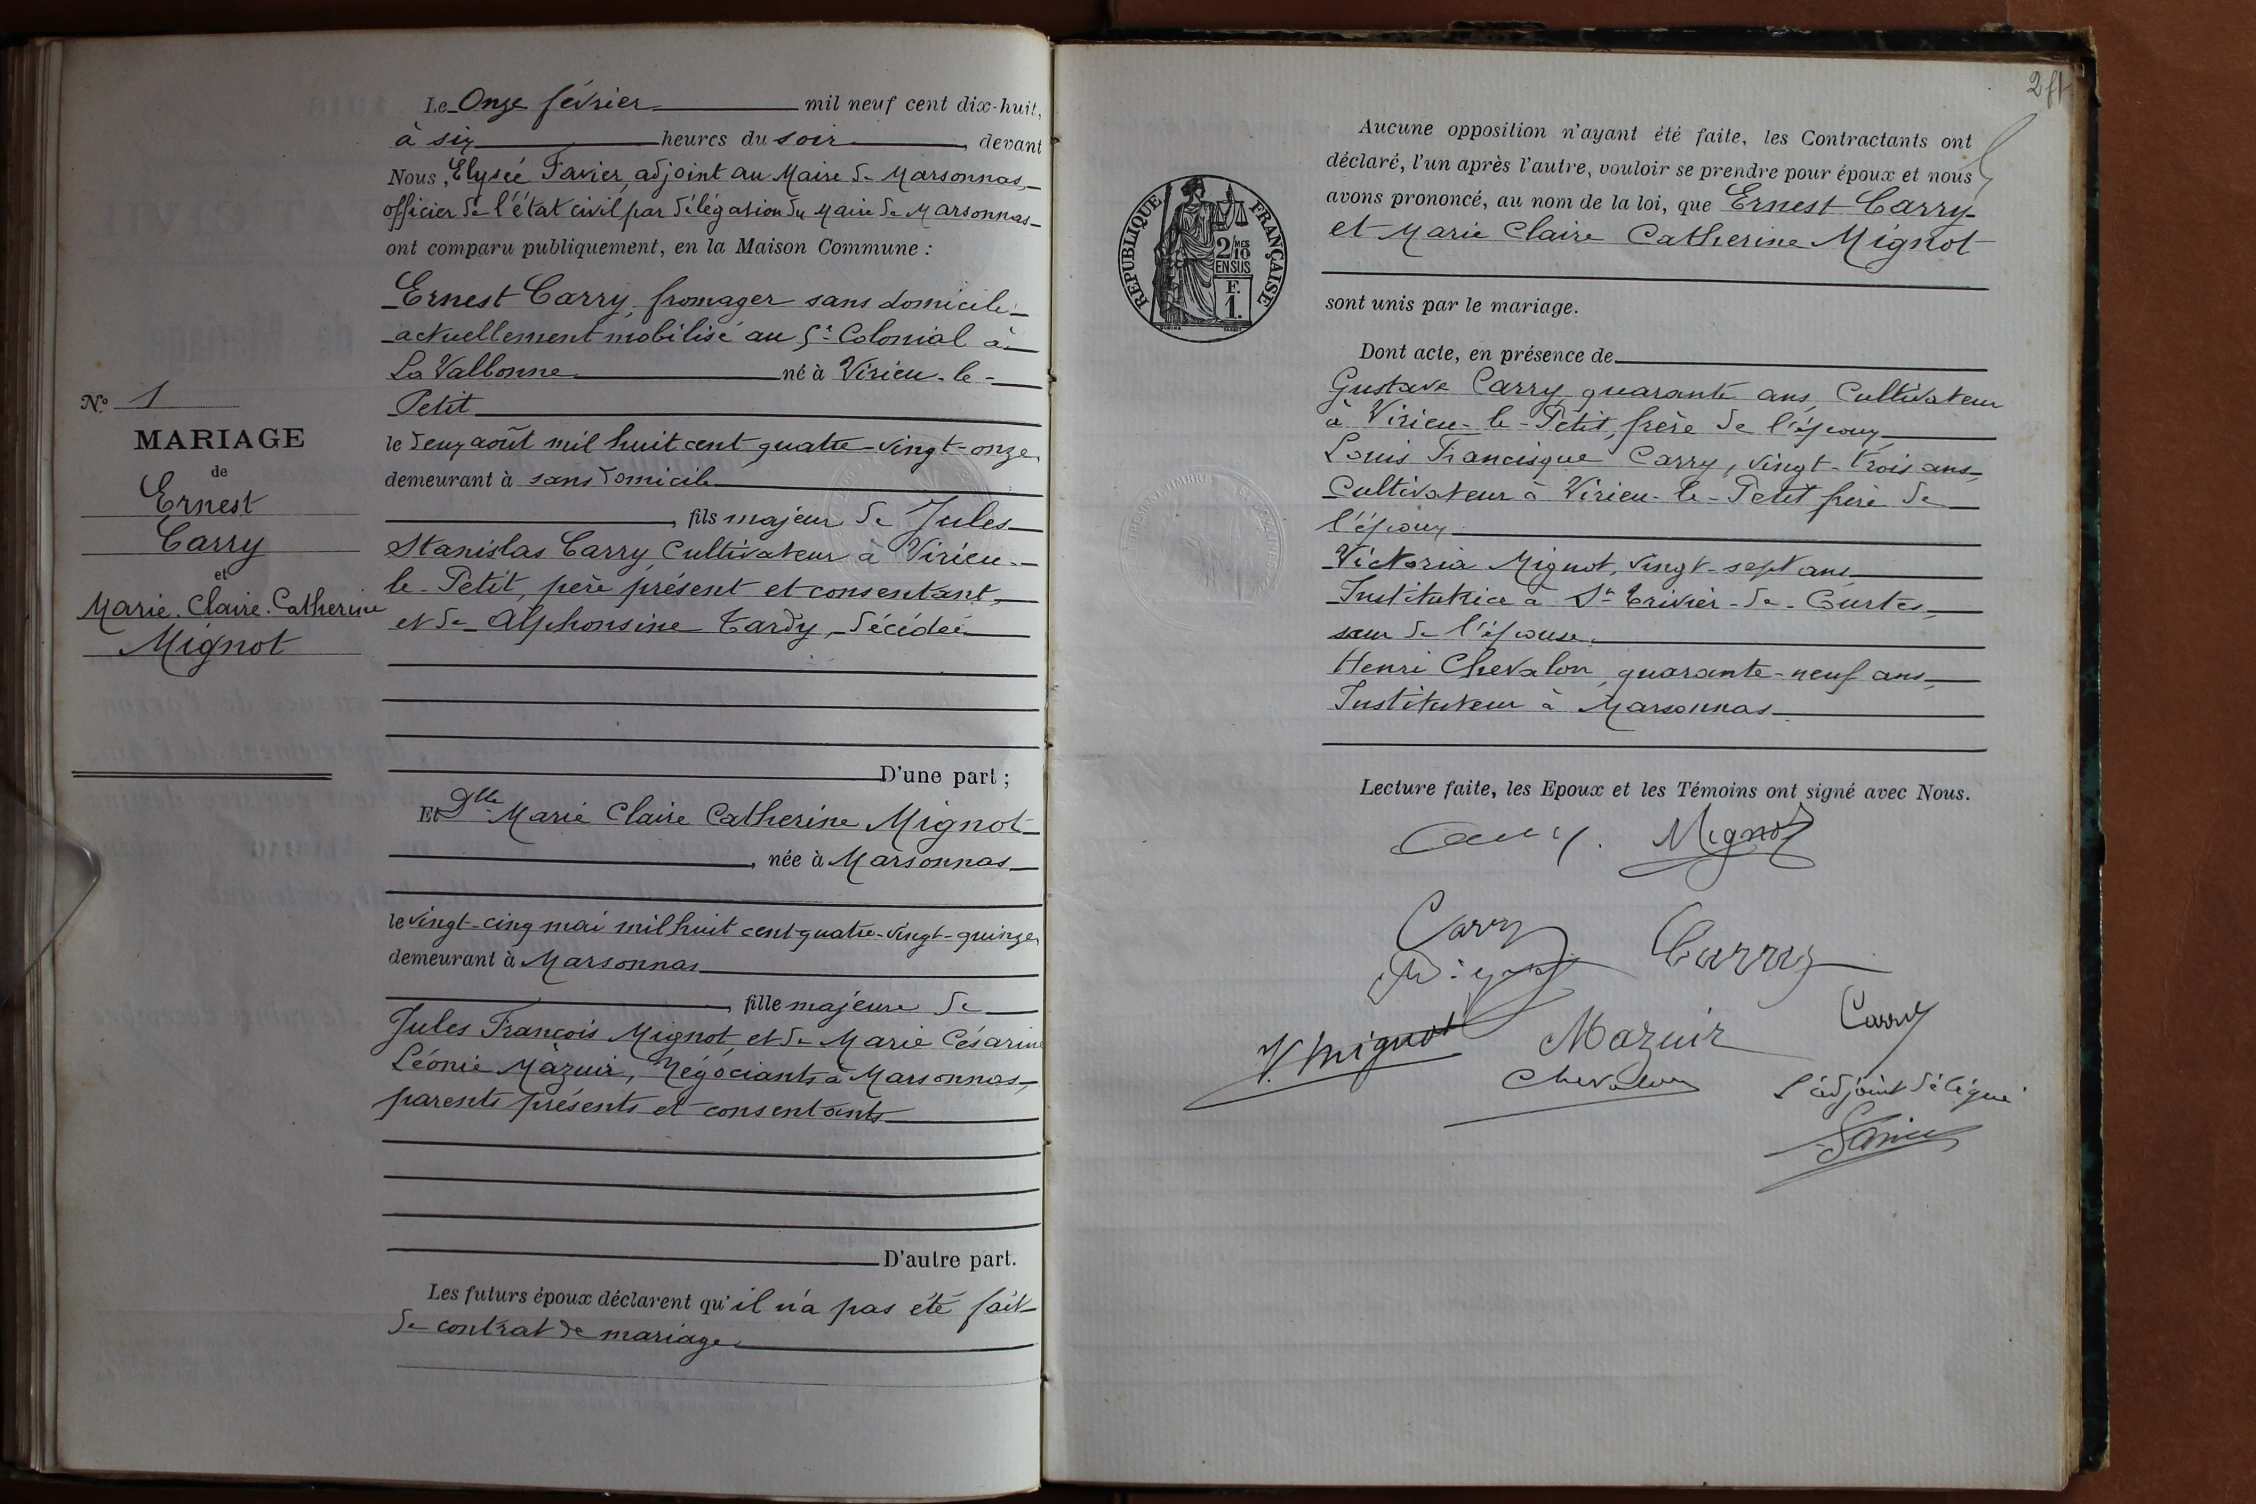 Nº 1
MARIAGE
de
Ernest
Carry
et
Marie. Claire. Catherine
Mignot
Le Onze février mil neuf cent dix-huit,
à six heures du soir, devant
Nous, Elysée Favier, adjoint au Maire de Marsonnas,
officier de l'état civil par délégation du Maire de Marsonnas
ont comparu publiquement, en la Maison Commune :
Ernest Carry, fromager sans domicile
actuellement mobilisé au 5e Colonial à
La Valbonne né à Virieu-le-
Petit
le deux août mil huit cent quatre-vingt-onze,
demeurant à sans domicile
, fils majeur de Jules
Stanislas Carry, Cultivateur à Virieu-
le-Petit, père présent et consentant,
et de Alphonsine Tardy, décédée
D'une part ;
Et Dlle Marie Claire Catherine Mignot
, née à Marsonnas
le vingt-cinq mai mil huit cent quatre-vingt-quinze,
demeurant à Marsonnas
, fille majeure de
Jules François Mignot, et de Marie Césarine
Léonie Mazuir, Négociants à Marsonnas,
parents présents et consentants
D'autre part.
Les futurs époux déclarent qu'il n'a pas été fait
de contrat de mariage
2
Aucune opposition n'ayant été faite, les Contractants ont
déclaré, l'un après l'autre, vouloir se prendre pour époux et nous
avons prononcé, au nom de la loi, que Ernest Carry
et Marie Claire Catherine Mignot
sont unis par le mariage.
RÉPUBLIQUE FRANÇAISE
2/10 MES
EN SUS
F.
1.
Dont acte, en présence de
Gustave Carry, quarante ans, Cultivateur
à Virieu-le-Petit, frère de l'époux
Louis Francisque Carry, vingt-trois ans,
Cultivateur à Virieu-le-Petit frère de
l'époux
Victoria Mignot, vingt-sept ans
Institutrice à St Trivier-de-Courtes,
sœur de l'épouse.
Henri Chevalon, quarante-neuf ans,
Instituteur à Marsonnas
Lecture faite, les Epoux et les Témoins ont signé avec Nous.
Carry. Mignot
Carry
Carry
Mignot
Carry
V. Mignot
Mazuir
Chevalon
l'adjoint délégué
Favier